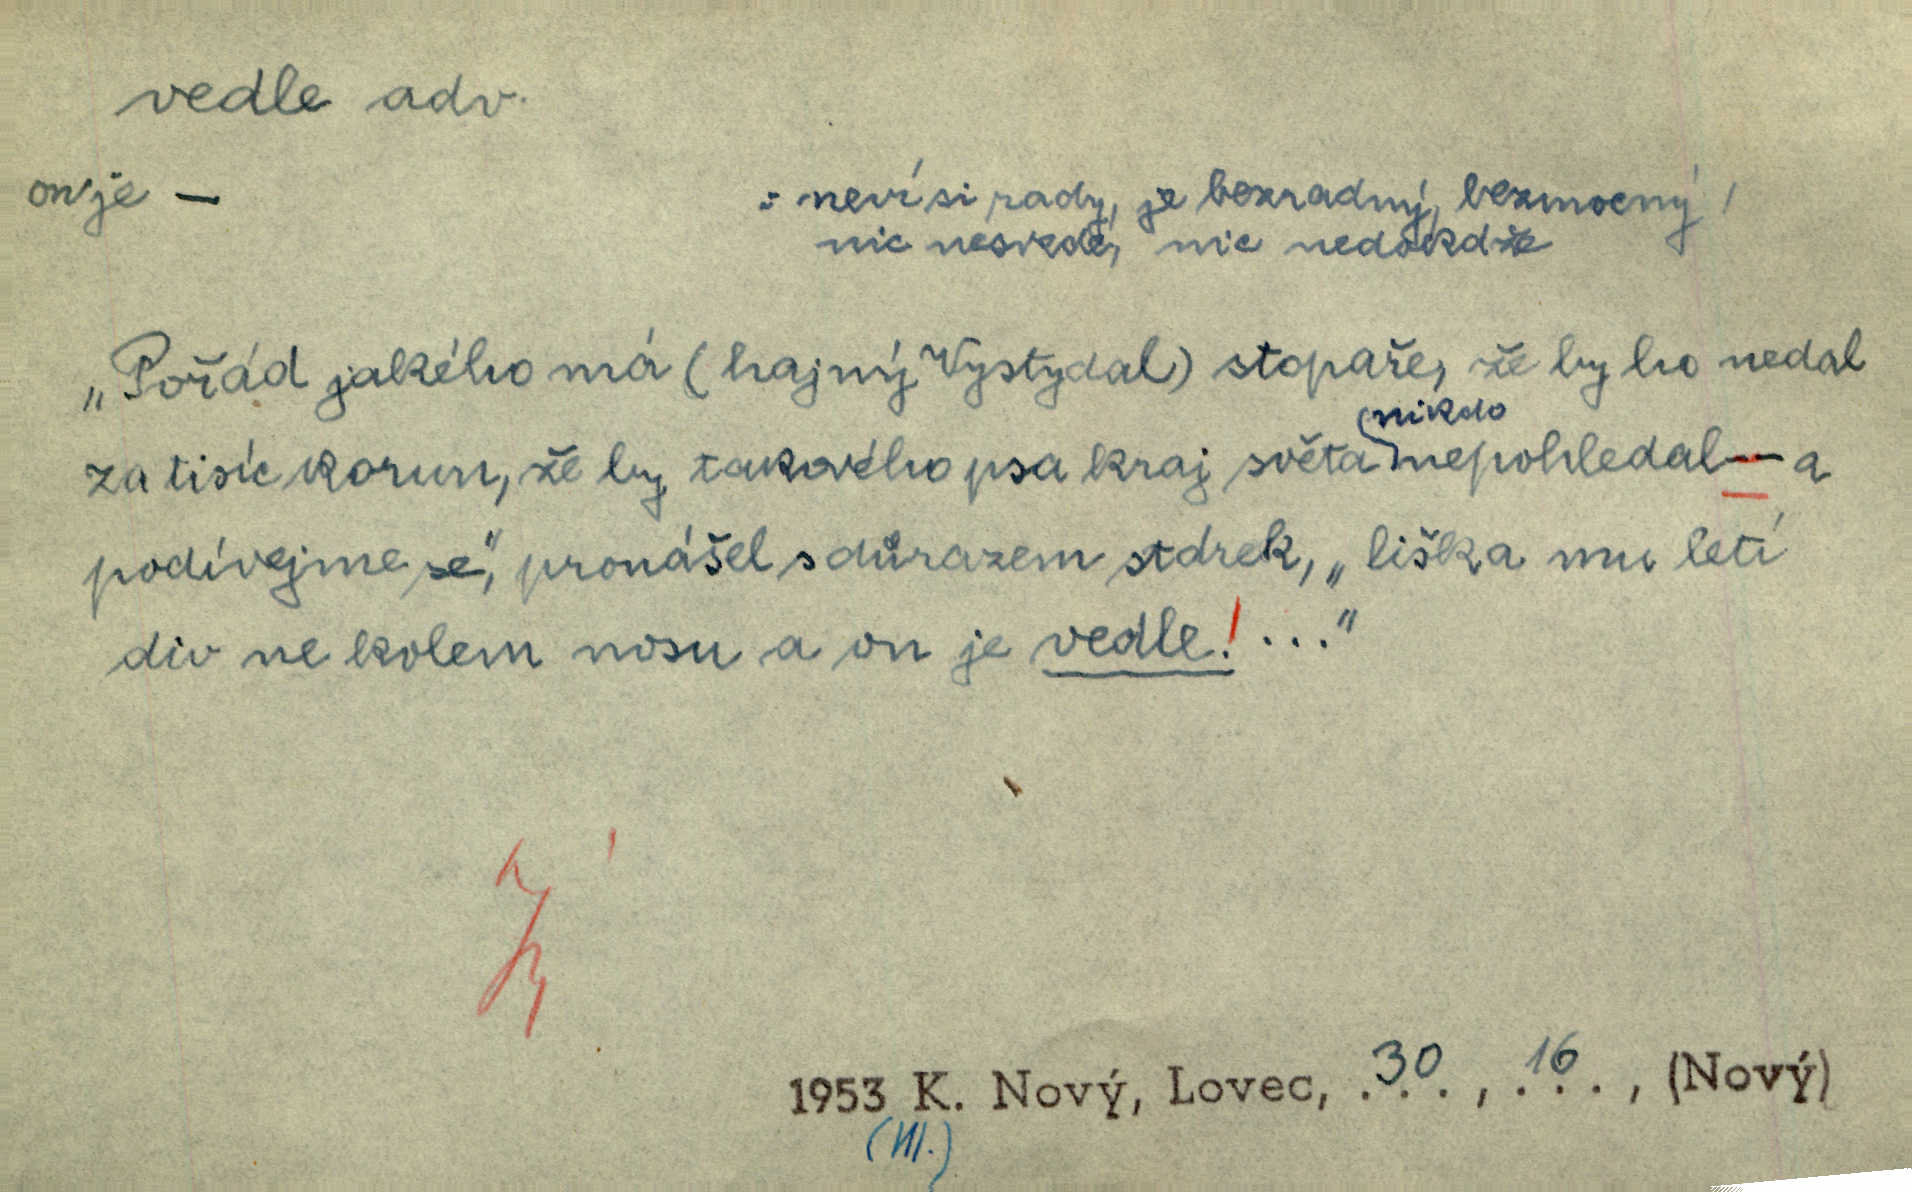 vedle adv.
on je — : neví si rady, je bezradný, bezmocný,
nic nesvede, nic nedokáže
„Pořád jakého má (hajný Vystydal) stopaře, že by ho nedal
nikdo
za tisíc korun, že by takového psa kraj světa nepohledal — a
podívejme se“, pronášel s důrazem stdrek, „liška mu letí
div ne kolem nosu a on je vedle! ...“
1953 K. Nový, Lovec, 30, 16, (Nový)
(III.)